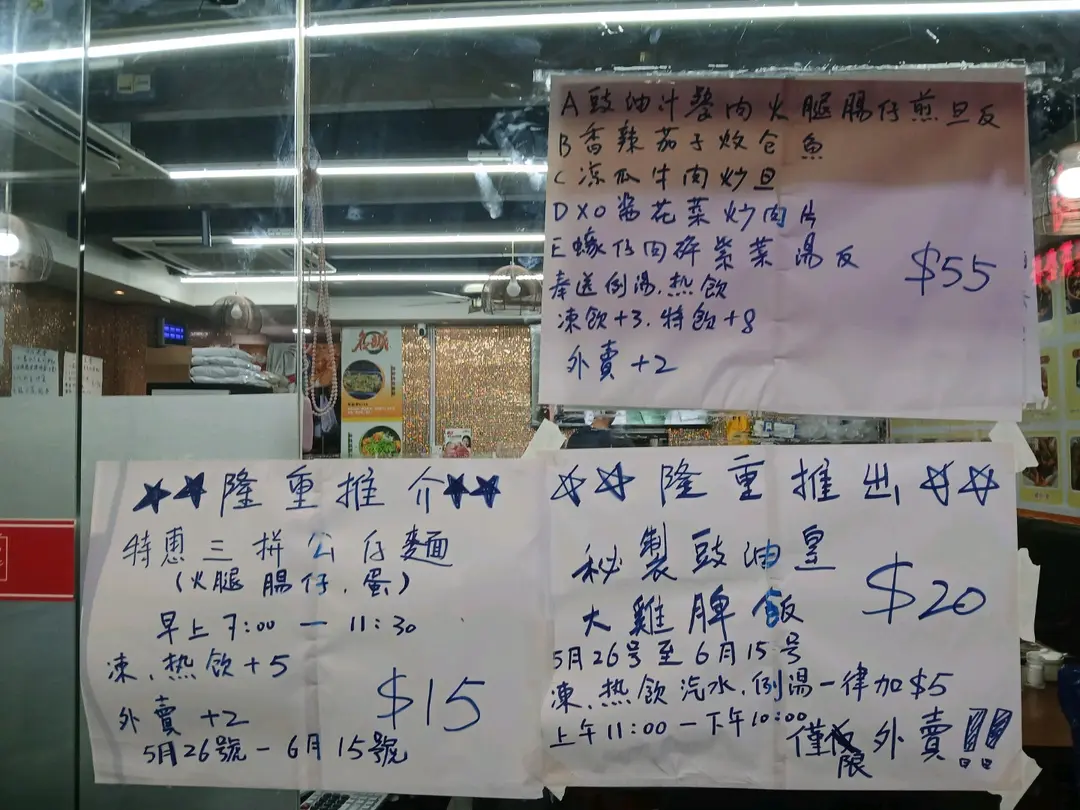 A豉油汁漿肉火腿腸仔煎旦反
B香辣茄子炆仓魚
C凉瓜牛肉炒旦
DXO酱花菜炒肉片
E蠔仔肉碎紫菜湯反
奉送例湯.热飲
凍飲+3.特飲+8
外賣+2
$55
★★隆重推介★★
特惠三拼公仔麵
(火腿腸仔.蛋)
早上7:00—11:30
凍、热飲+5
外賣+2
$15
5月26號—6月15號
☆☆隆重推出☆☆
秘製豉油皇
大雞脾飯
$20
5月26号至6月15号
凍、热飲汽水、例湯一律加$5
上午11:00—下午10:00
僅限外賣!!